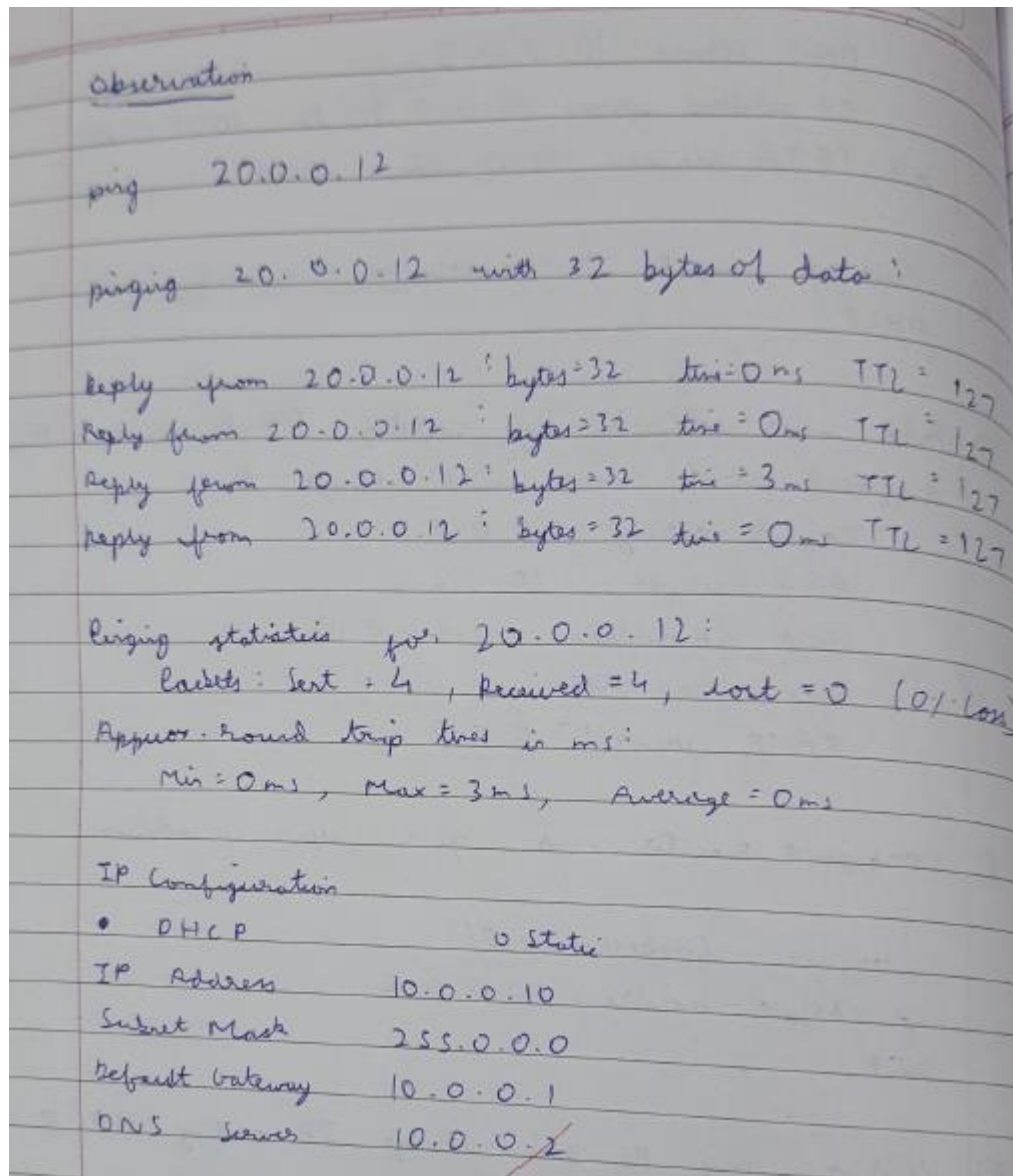 Observation
ping 20.0.0.12
pinging 20.0.0.12 with 32 bytes of data :
Reply from 20.0.0.12 : bytes=32 time=0ms TTL = 127
Reply from 20.0.0.12 : bytes=32 time = 0ms TTL = 127
Reply from 20.0.0.12 : bytes=32 time = 3ms TTL = 127
Reply from 20.0.0.12 : bytes = 32 time = 0ms TTL = 127
Pinging statistics for 20.0.0.12:
Packets: Sent = 4, Received = 4, Lost = 0 (0% Loss)
Approx. round trip times in ms:
Min = 0ms, Max = 3ms, Average = 0ms
IP Configuration
• DHCP o Static
IP Address 10.0.0.10
Subnet Mask 255.0.0.0
Default Gateway 10.0.0.1
DNS Server 10.0.0.2